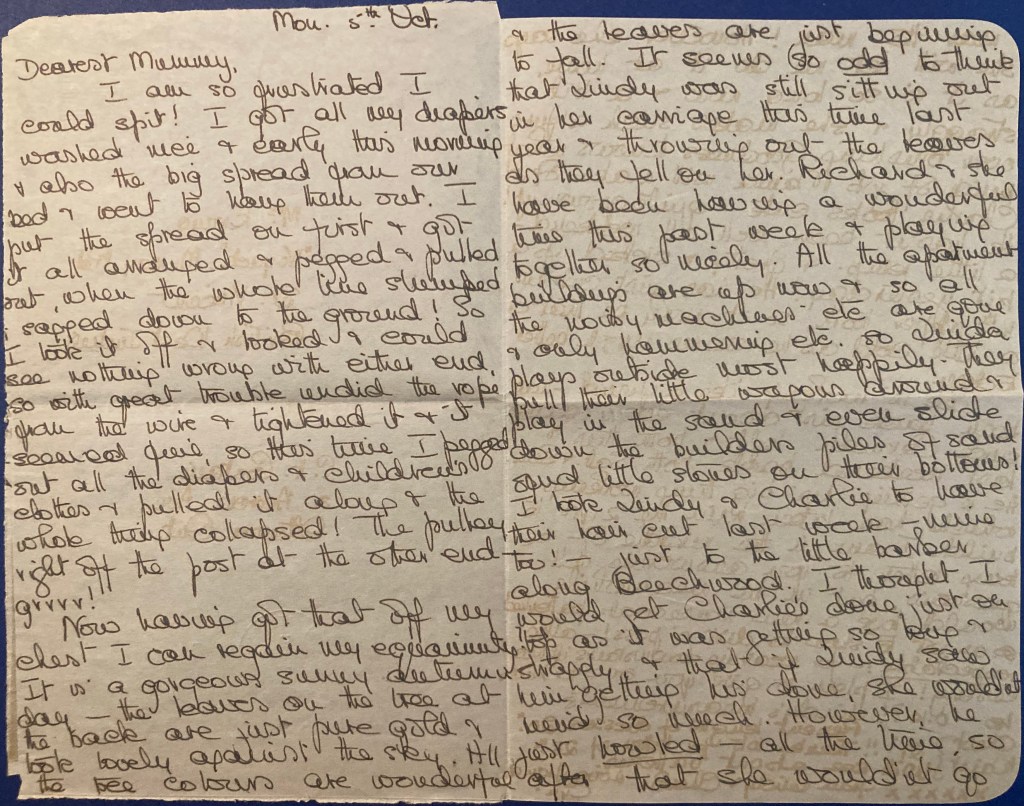 Mon. 5th Oct.
Dearest Mummy,
I am so frustrated I
could spit! I got all my diapers
washed nice & early this morning
& also the big spread from our
bed & went to hang them out. I
put the spread on first & got
it all arranged & pegged & pulled
out when the whole line slumped
& sagged down to the ground! So
I took it off & looked & could
see nothing wrong with either end,
so with great trouble undid the rope
from the wire & tightened it & it
seemed fine, so this time I pegged
out all the diapers & children's
clothes & pulled it along & the
whole thing collapsed! The pulley
right off the post at the other end
grrrr!
Now having got that off my
chest I can regain my equanimity.
It is a gorgeous sunny autumn
day – the leaves on the tree at
the back are just pure gold &
look lovely against the sky. All
the tree colours are wonderful
& the leaves are just beginning
to fall. It seems so odd to think
that Lindy was still sitting out
in her carriage this time last
year & throwing out the leaves
as they fell on her. Richard & she
have been having a wonderful
time this past week & playing
together so nicely. All the apartment
buildings are up now & so all
the noisy machines etc are gone
& only hammering etc. so Linda
plays outside most happily. They
pull their little wagons around &
play in the sand & even slide
down the builders piles of sand
and little stones on their bottoms!
I took Lindy & Charlie to have
their hair cut last week – mine
too! – just to the little barber
along Beechwood. I thought I
would get Charlie's done just on
top as it was getting so long &
straggly & that if Lindy saw
him getting his done, she wouldn't
mind so much. However, he
just howled – all the time, so
after that she wouldn't go